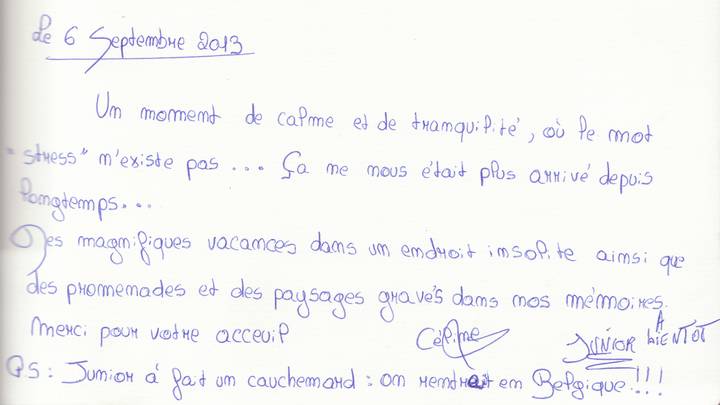 Le 6 Septembre 2013
Un moment de calme et de tranquilité, où le mot
"stress" n'existe pas... Ça ne nous était plus arrivé depuis
longtemps...
Des magnifiques vacances dans un endroit insolite ainsi que
des promenades et des paysages gravés dans nos mémoires.
Merci pour votre acceuil Céline JUNIOR A BIENTOT
PS : Junior à fait un cauchemard : on rendrait en Belgique!!!